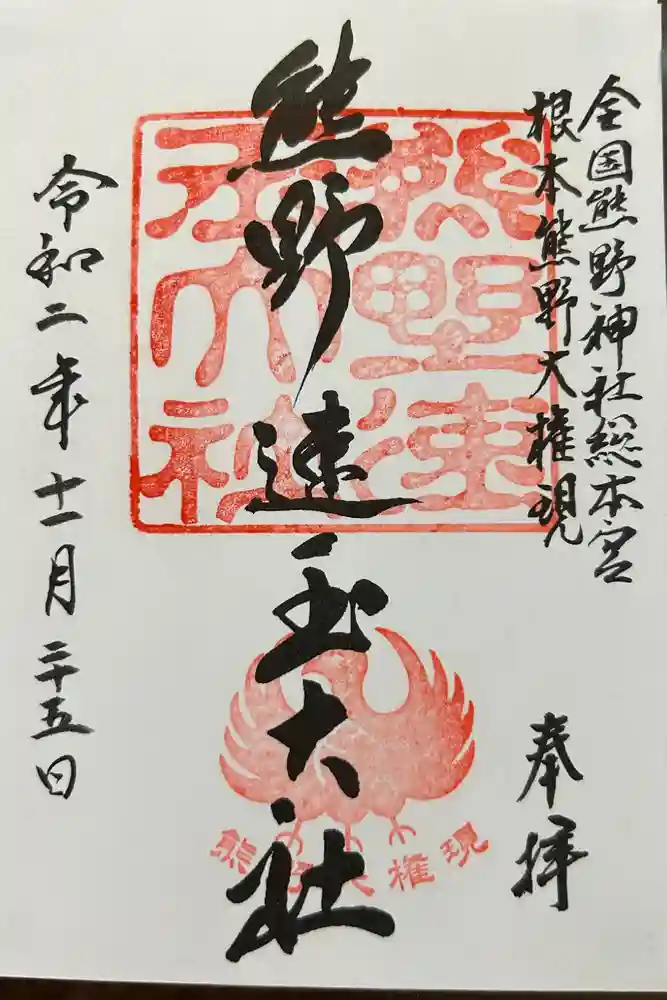 全国熊野神社総本宮
根本熊野大権現
奉拝
熊野速玉大社
熊野速玉大社
熊野大権現
令和二年十一月二十五日